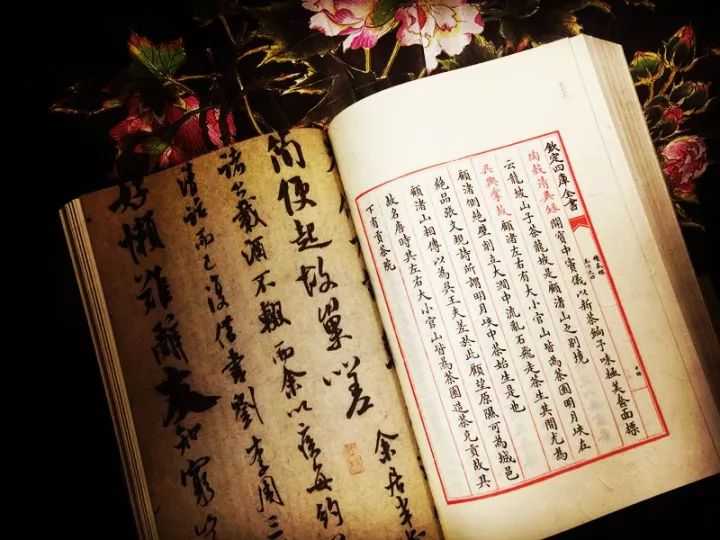 欽定四庫全書
陶穀清異錄 開寶中竇儀以新茶餉予味極美奩面標
云龍坡山子茶龍坡是顧渚山之別境
吳興掌故 顧渚左右有大小官山皆為茶園明月峽在
顧渚側絕壁削立大澗中流亂石飛走茶生其間尤為
絕品張文規詩所謂明月峽中茶始生是也
顧渚山相傳以為吳王夫差於此顧望原隰可為城邑
故名唐時其左右大小官山皆為茶園造茶充貢故其
下有貢茶院
簡便起故巢嗟
余居半
諸公載酒不輟而余以疾每約
清話而已復借書劉李周三
好懶難辭友知窮